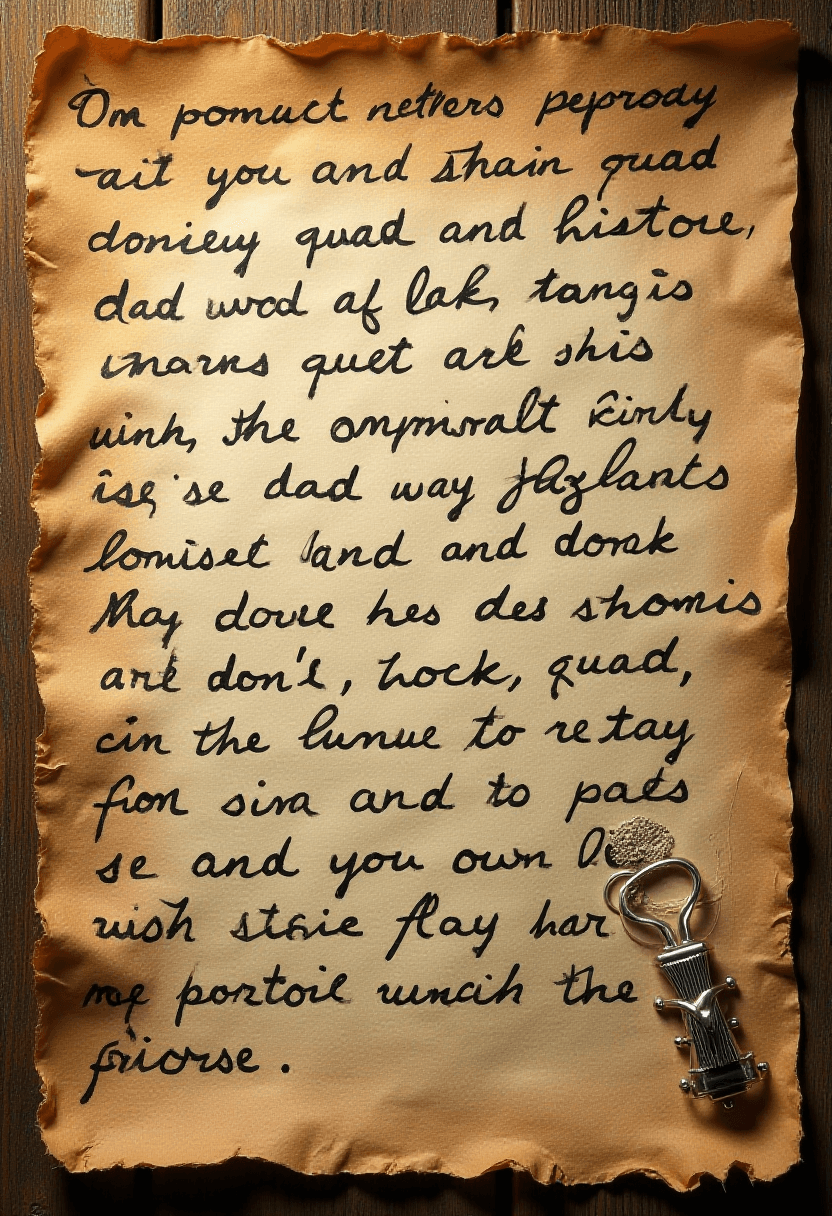 Om pomuct netters peprody
ait you and shain quad
doniewy quad and histore,
dad uvcd af lak, tangis
marns quet ark shis
uinh, the kinty
ise, se dad way
lomiset land and dorak
May doure hes des shomis
ark don't, hock, quad,
cin the lunue to retay
fion sira and to pats
se and you own
wish stsie flay har
portoil wncih the
friorse.